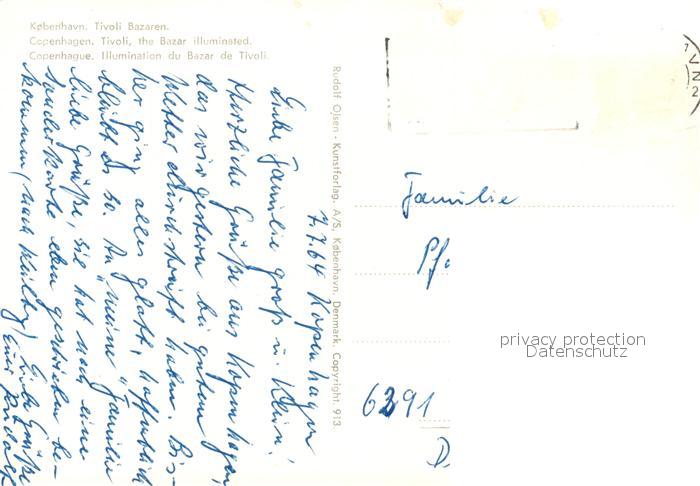 København. Tivoli Bazaren.
Copenhagen. Tivoli, the Bazar illuminated.
Copenhague. Illumination du Bazar de Tivoli.
7.7.64 Kopenhagen
Liebe Familie groß u. klein!
Herzliche Grüße aus Kopenhagen,
das wir gestern bei gutem
Wetter durchstreift haben. Bis-
her ging alles glatt, hoffentlich
bleibt es so. An "meine" Familie
liebe Grüße, sie hat noch eine
Sonderkarte, dem gestrichen be-
kommen (nach
Liebe Grüße
Euer Rudolf
Rudolf Olsen - Kunstforlag, A/S, København, Denmark. Copyright. 913
Familie
Pfo
6391
D
privacy protection
Datenschutz